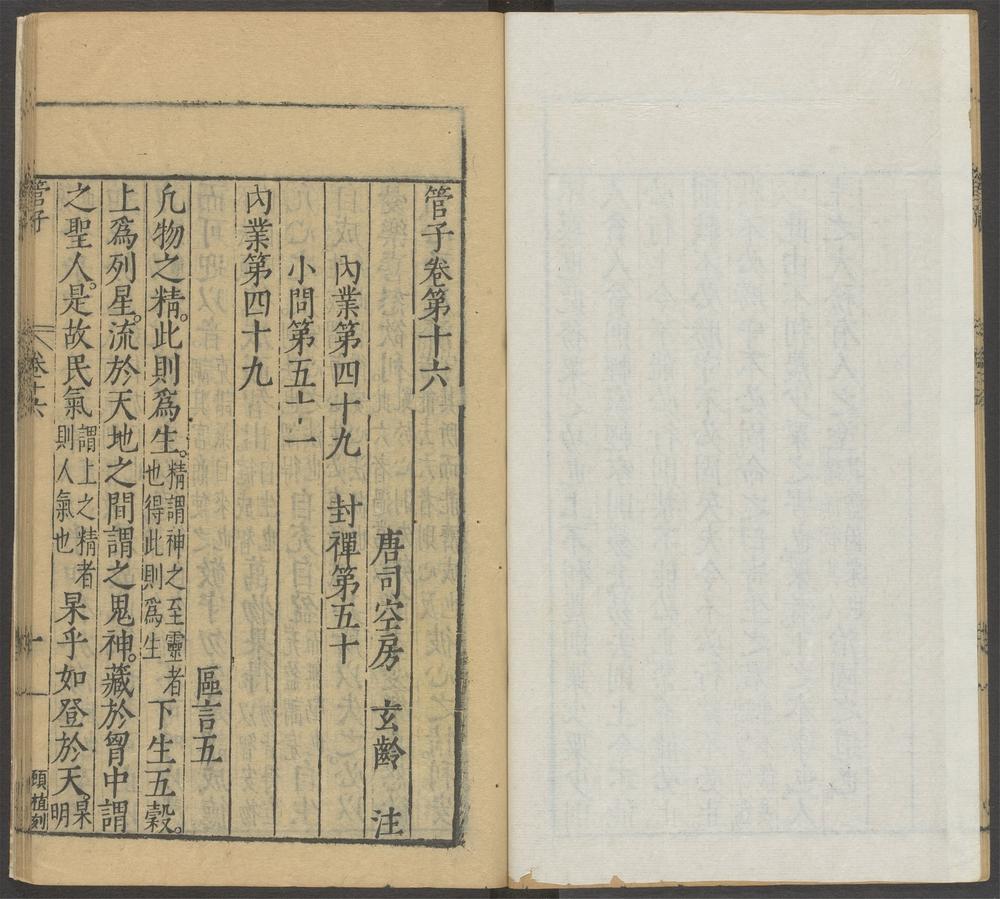 管子卷第十六
唐司空房　玄齡　注
內業第四十九　封禪第五十
小問第五十一
內業第四十九
區言五
凢物之精。此則爲生。精謂神之至靈者也得此則爲生下生五穀。
上爲列星。流於天地之間謂之鬼神。藏於胷中謂
之聖人。是故民氣謂上之精者則人氣也杲乎如登於天。杲明
管子
卷十六
一
顧植刻